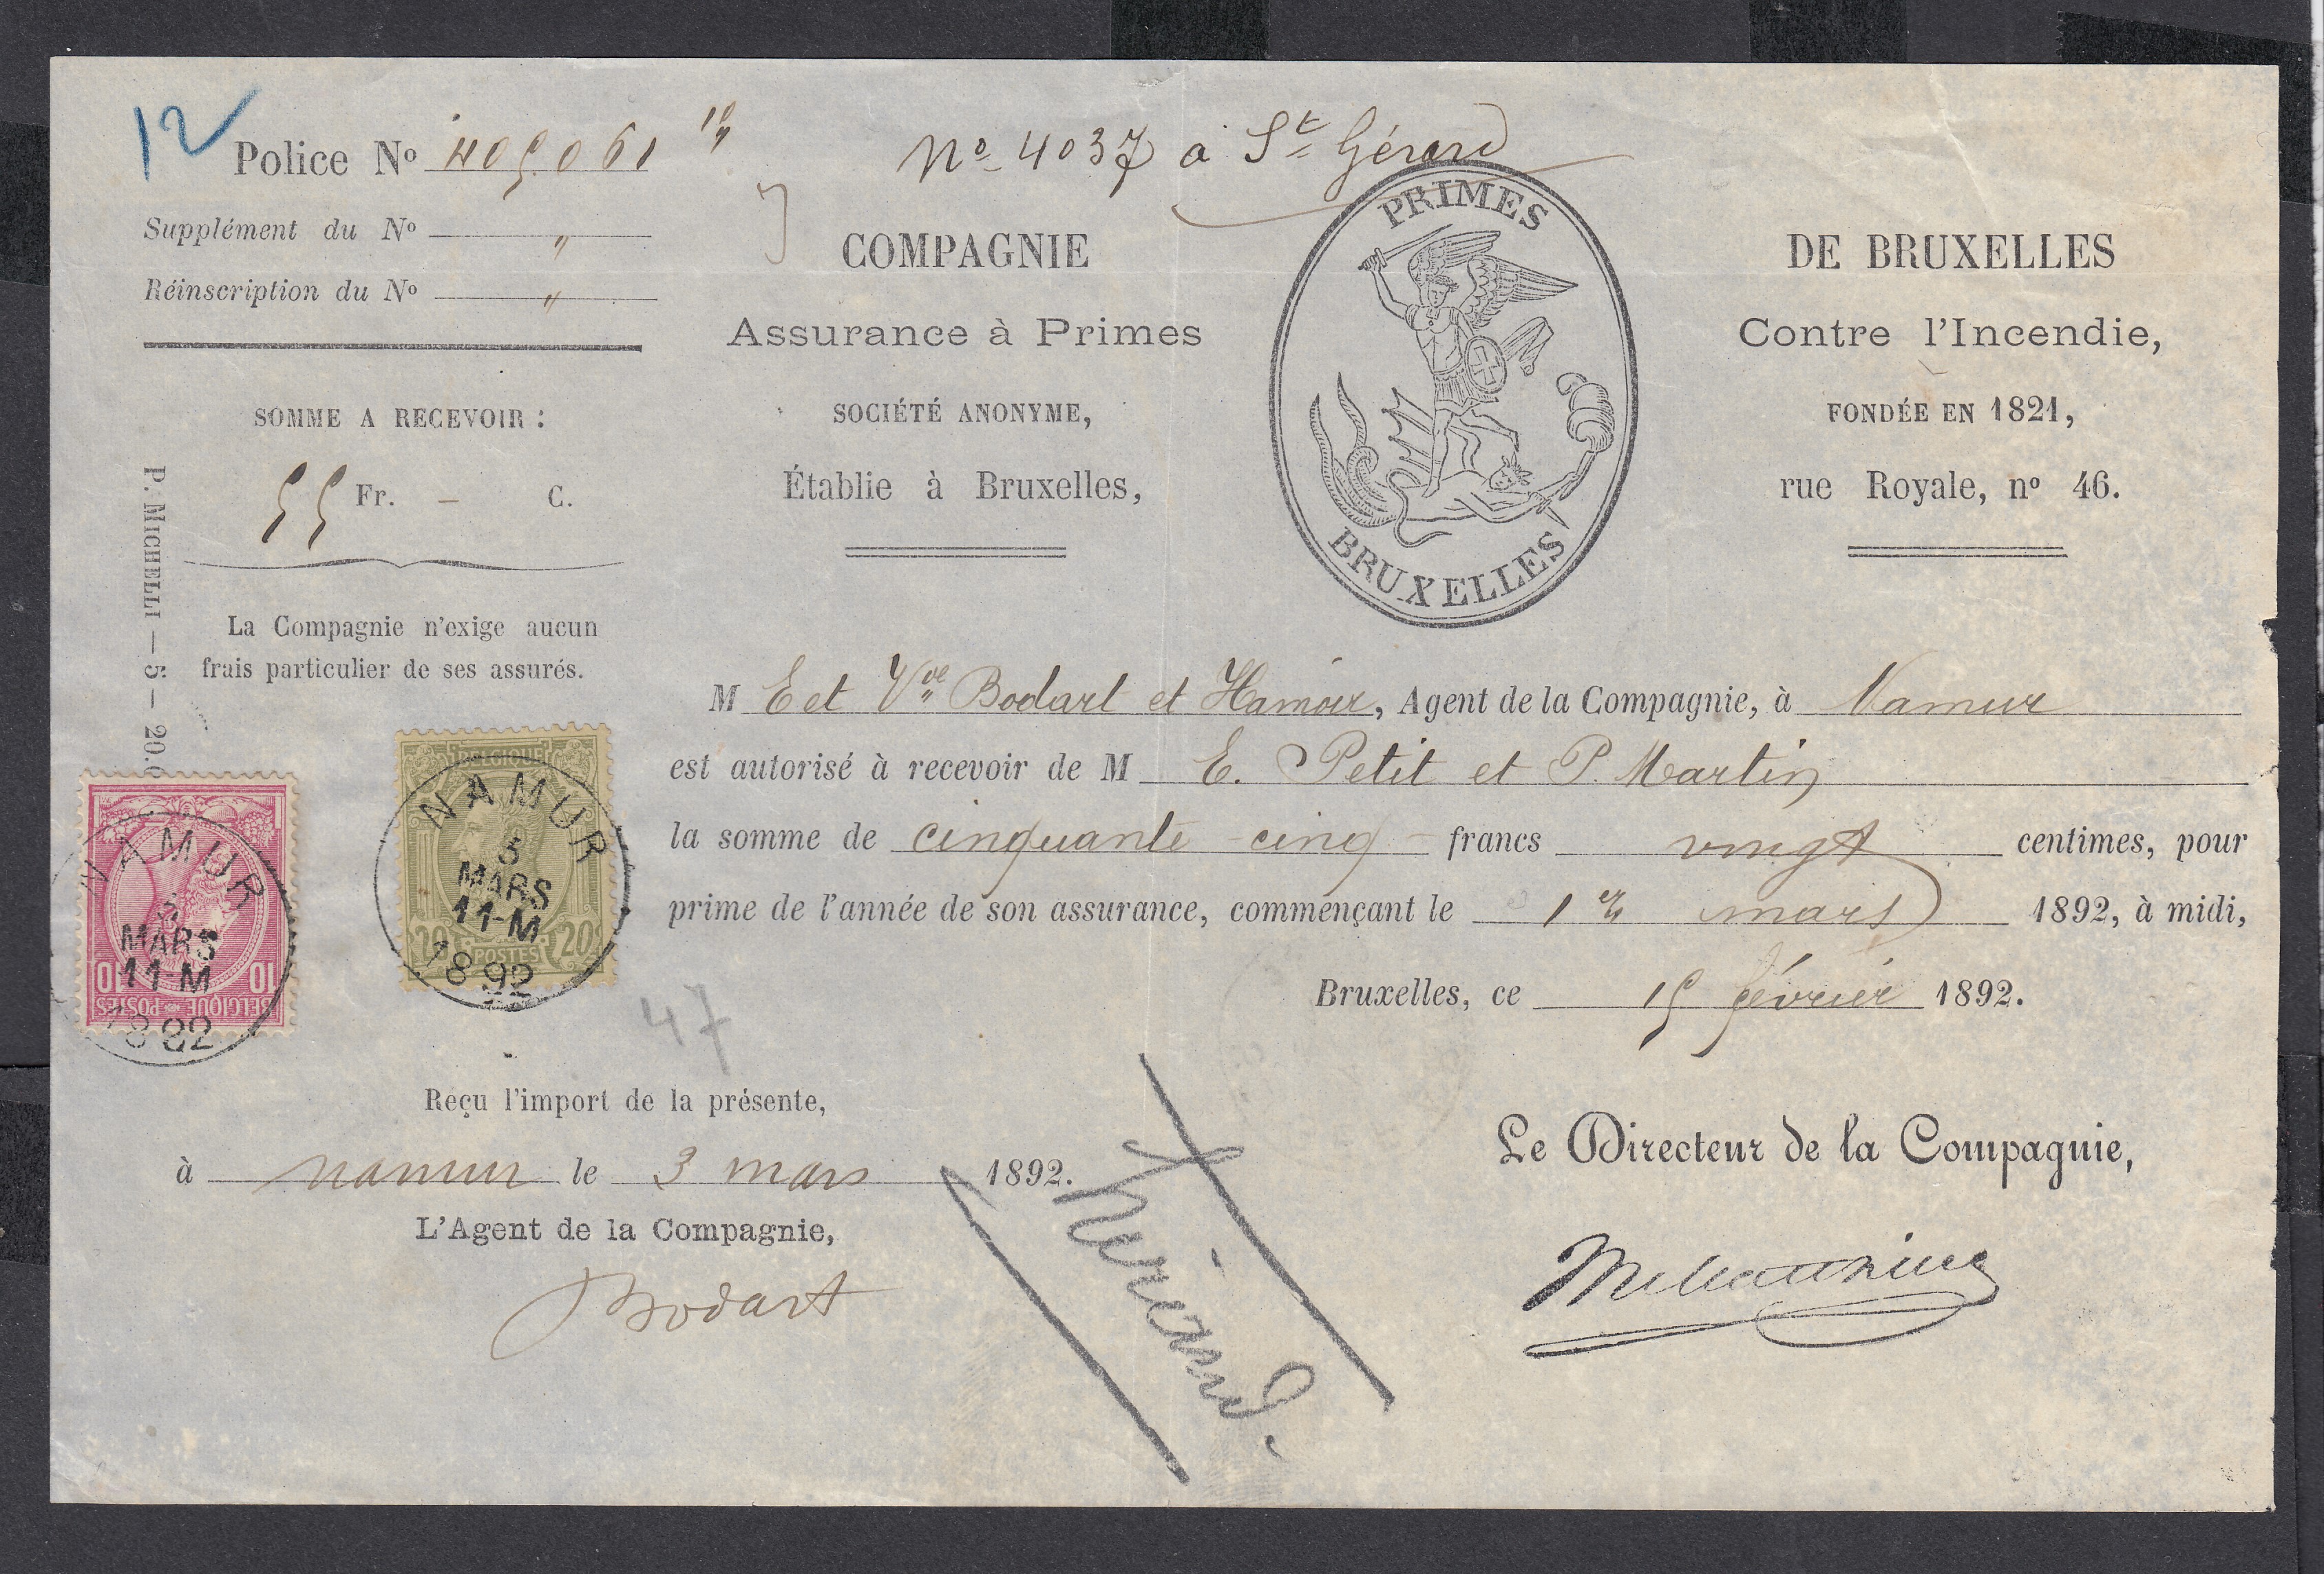 12
Police Nº 405.061
Nº 4037 à St Gérard
Supplément du Nº "
Réinscription du Nº "
SOMME A RECEVOIR :
55 Fr. — C.
La Compagnie n'exige aucun
frais particulier de ses assurés.
P. MICHELLI — 5 — 20.
COMPAGNIE
Assurance à Primes
SOCIÉTÉ ANONYME,
Établie à Bruxelles,
PRIMES
BRUXELLES
DE BRUXELLES
Contre l'Incendie,
FONDÉE EN 1821,
rue Royale, nº 46.
M E et Vve Bodart et Hamoir, Agent de la Compagnie, à Namur
est autorisé à recevoir de M E. Petit et P. Martin
la somme de cinquante-cinq francs vingt centimes, pour
prime de l'année de son assurance, commençant le 1er mars 1892, à midi,
Bruxelles, ce 15 février 1892.
BELGIQUE POSTES
10 10
NAMUR
3
MARS
11-M
1892
BELGIQUE
20 POSTES 20
NAMUR
3
MARS
11-M
1892
47
Reçu l'import de la présente,
à Namur le 3 mars 1892.
L'Agent de la Compagnie,
Bodart
Le Directeur de la Compagnie,